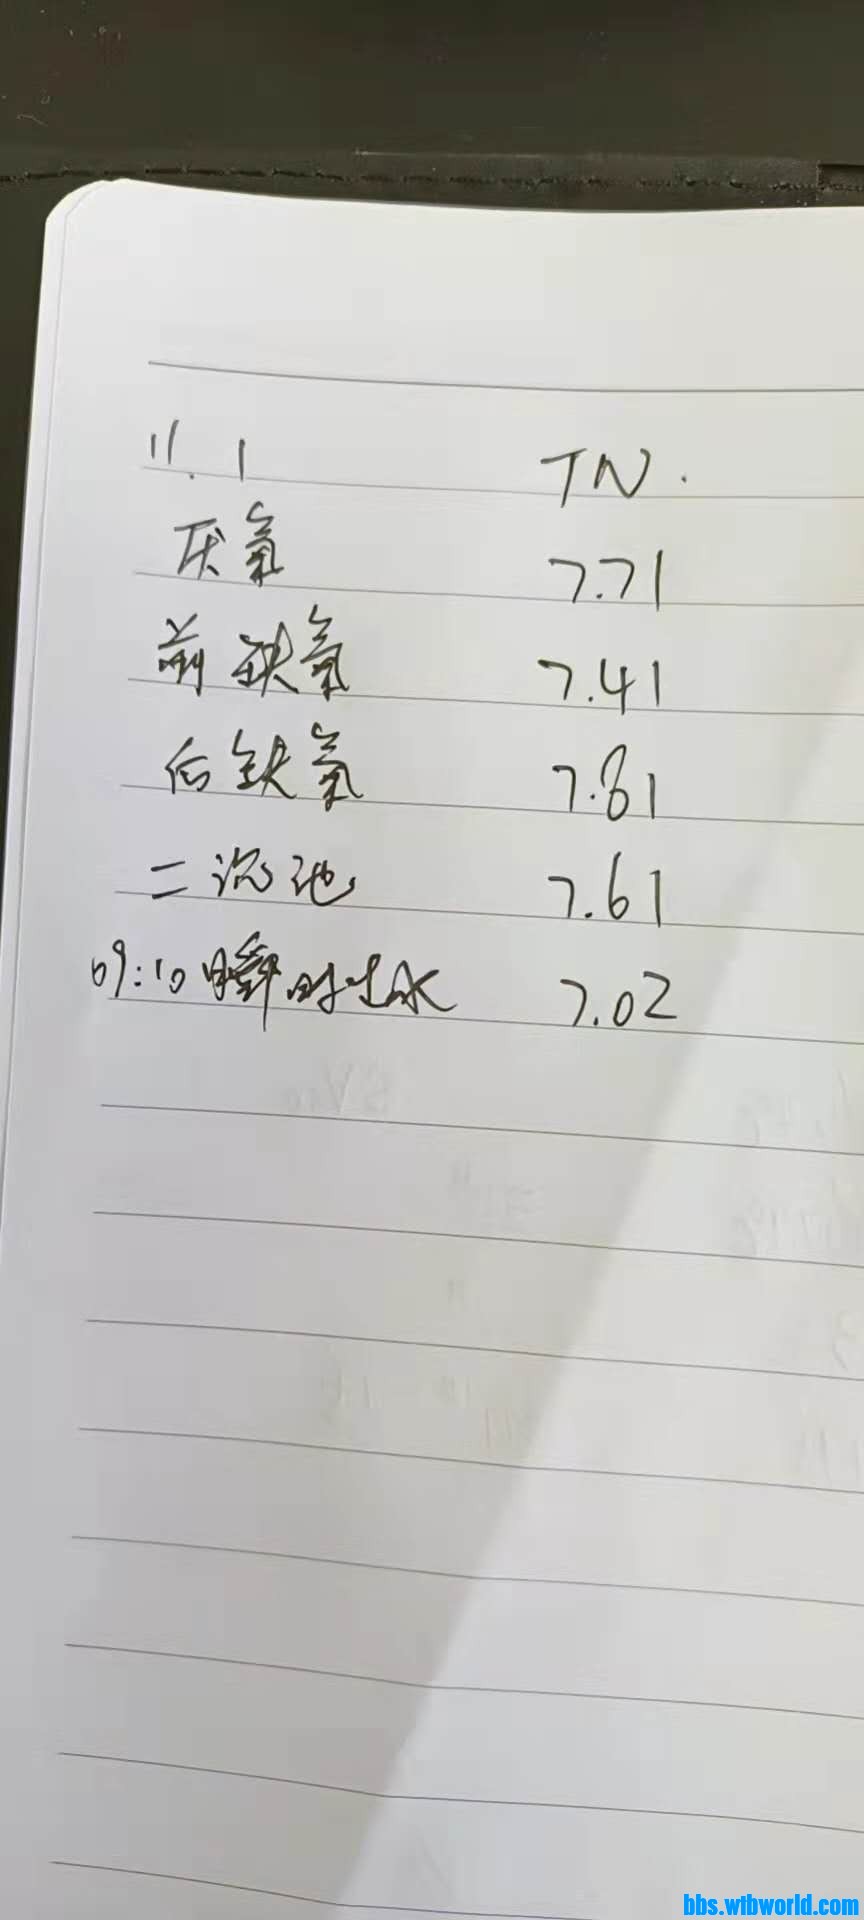 11.1 TN.
厌氧 7.71
前缺氧 7.41
后缺氧 7.81
二沉池 7.61
09:10瞬时出水 7.02
bbs.wtbworld.com